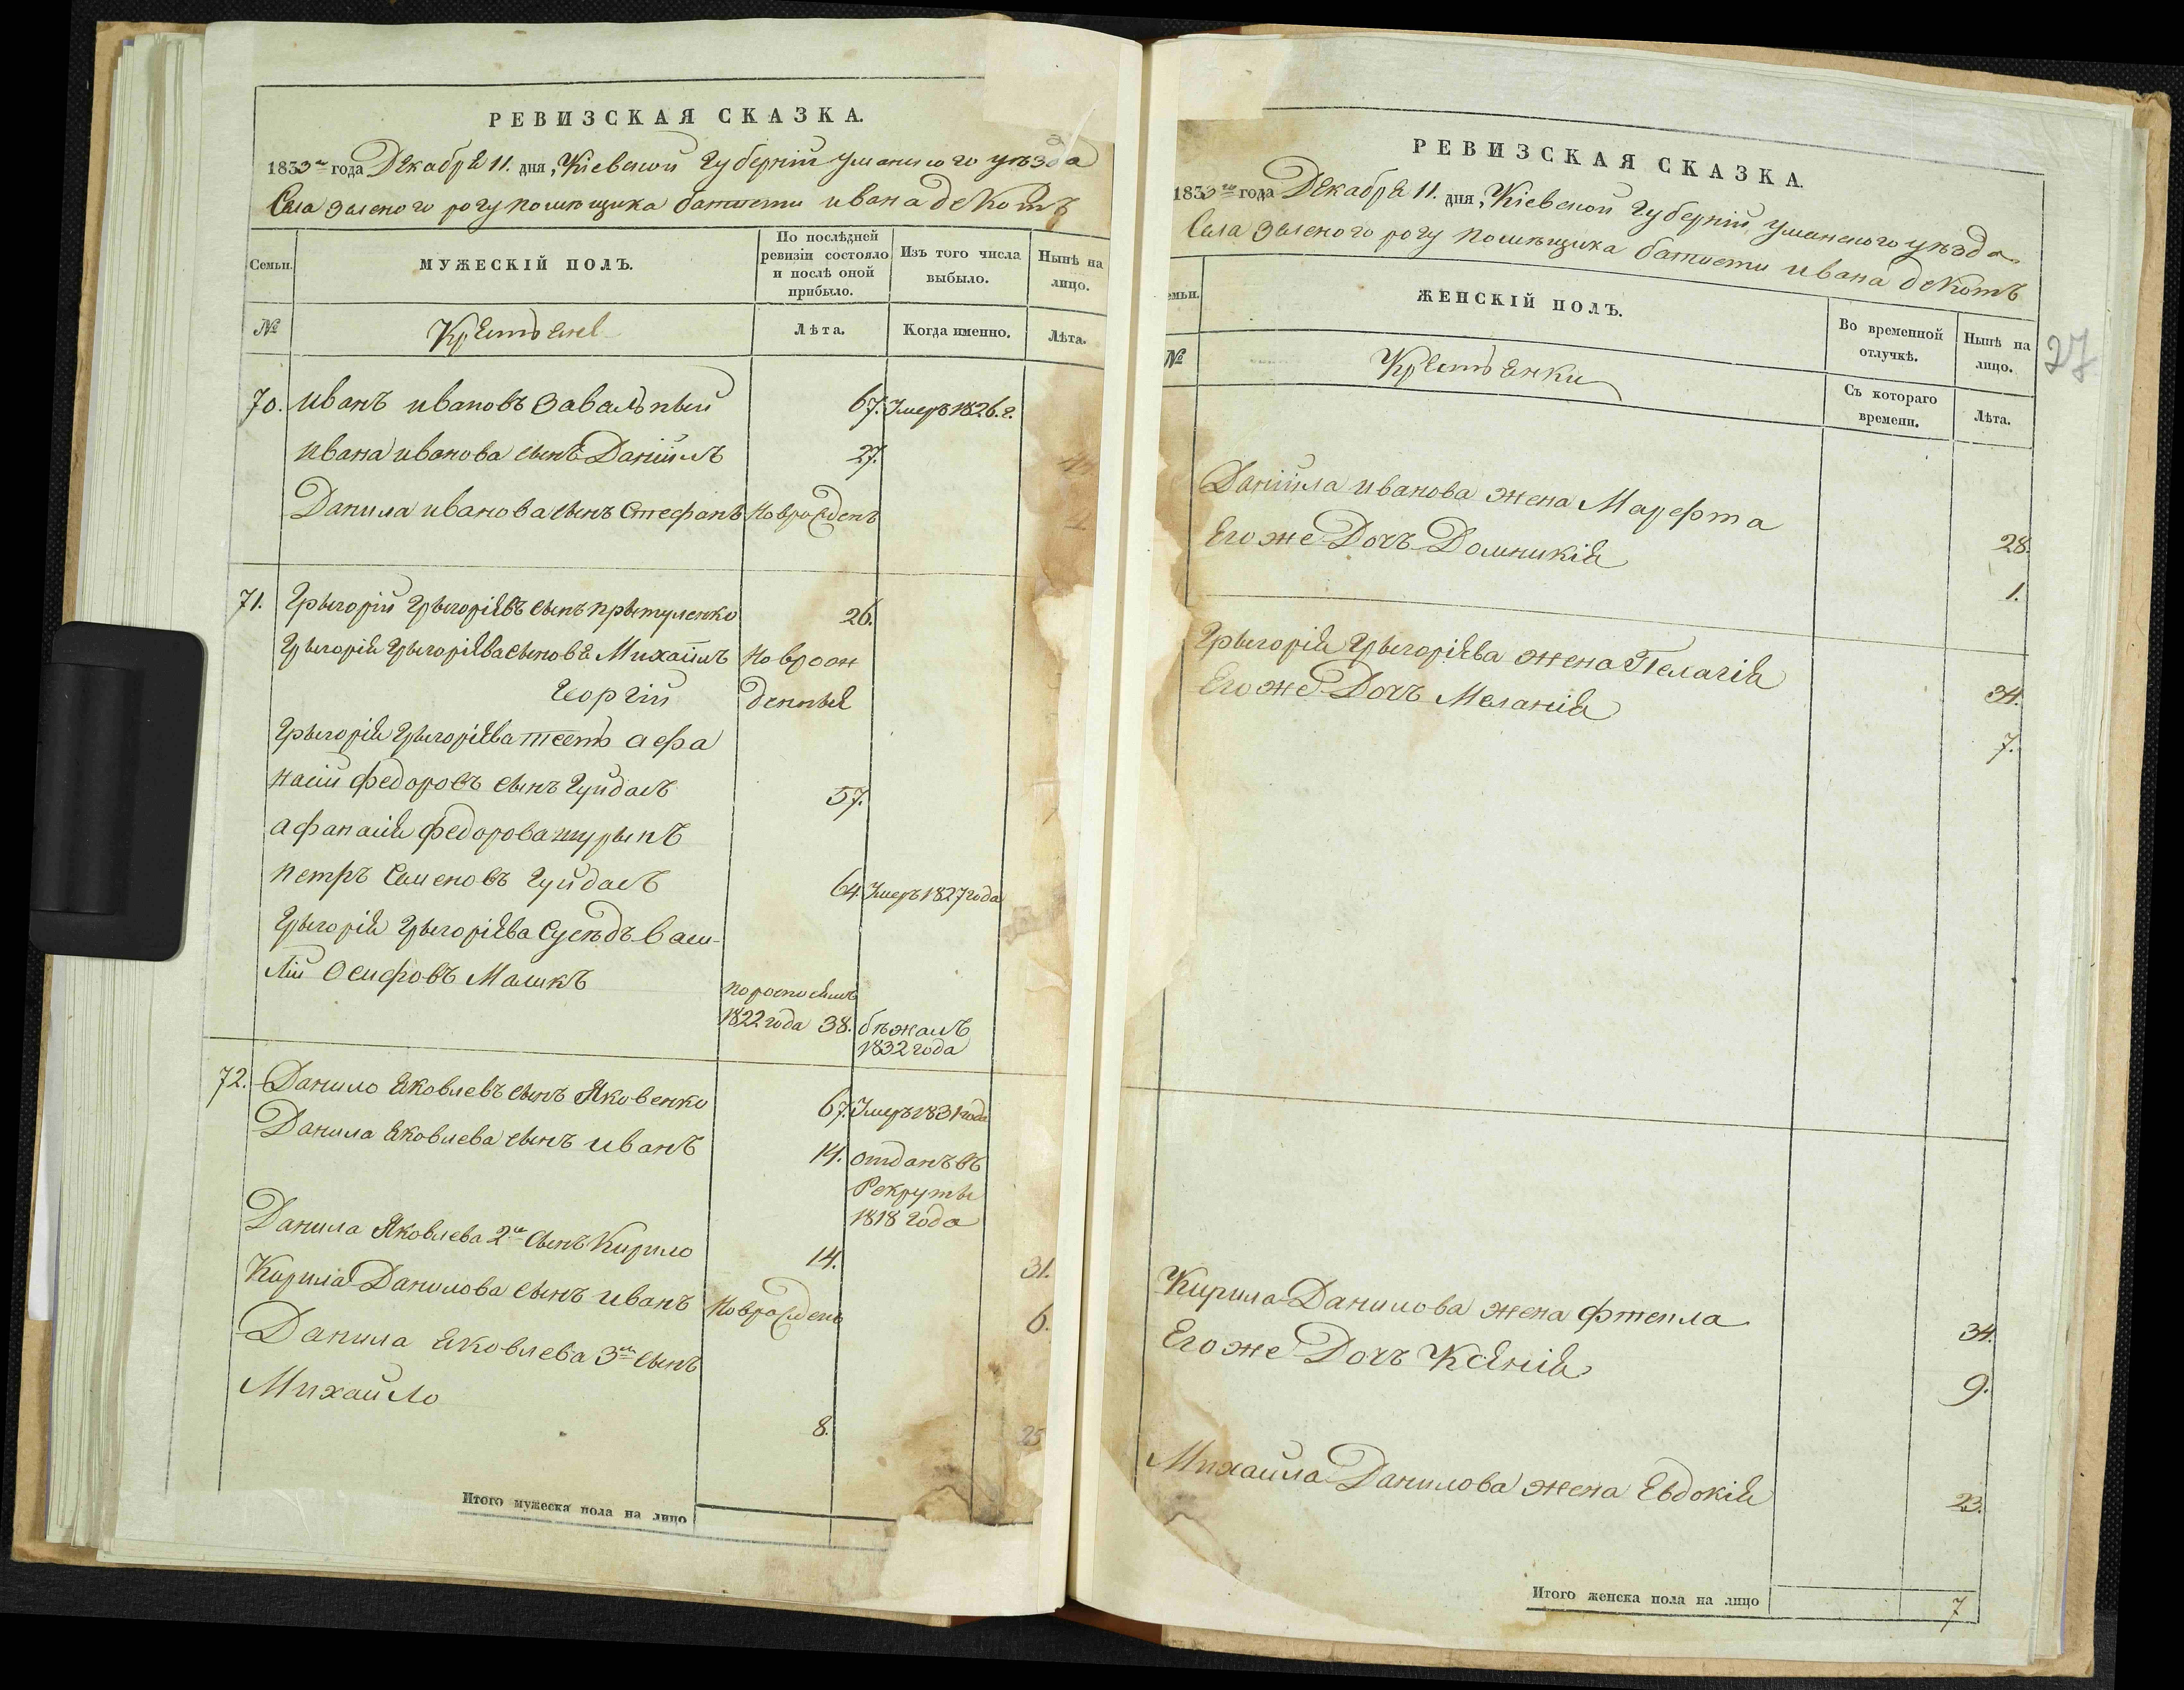 РЕВИЗСКАЯ СКАЗКА.
1833го года Декабря 11. дня, Кіевской Губерніи Уманского уѣзда
Села Зеленого рогу помѣщика батисти ивана декотъ
Семьи.
МУЖЕСКІЙ ПОЛЪ.
По послѣдней ревизіи состояло и послѣ оной прибыло.
Изъ того числа выбыло.
Нынѣ на лицо.
№
Крестьяне
Лѣта.
Когда именно.
Лѣта.
70. Иванъ ивановъ Завальный 67. Умеръ 1826. г.
Ивана иванова сынъ Даніилъ 27.
Данила иванова сынъ Стефанъ Новрожденъ
71. Грыгорій Грыгоріевъ сынъ прытуленко 26.
Грыгорія Грыгоріева сыновя Михаилъ Новрож
Георгій денные
Грыгорія Грыгоріева тесть афа
насій федоровъ сынъ Гуйдашъ 57.
афанасія федорова шурынъ
петръ Семеновъ Гуйдашъ 64. Умеръ 1827 года
Грыгорія Грыгоріева Сусѣдъ Васи-
лій Осифовъ
1822 года 38. бѣжалъ
1832 года
72. Данило Яковлевъ сынъ Яковенко 67. Умеръ 1831 года
Данила Яковлева сынъ иванъ 14. отданъ въ
Рекруты
1818 года
Данила Яковлева 2й сынъ Кирило 14. 31.
Кирила Данилова сынъ иванъ Новрожденъ 6.
Данила Яковлева 3й сынъ
Михайло 8. 25
Итого мужеска пола на лицо
РЕВИЗСКАЯ СКАЗКА.
1833го года Декабря 11. дня, Кіевской Губерніи, Уманского уѣзда
Села Зеленого рогу помѣщика батисти ивана декотъ
27
емьи.
ЖЕНСКІЙ ПОЛЪ.
Во временной отлучкѣ.
Нынѣ на лицо.
№
Крестьянки
Съ котораго времени.
Лѣта.
Даніила иванова жена Марефта 28.
Его же Дочъ Домникія 1.
Грыгорія Грыгоріева жена Пелагія 34.
Его же Дочъ Меланія 7.
Кирила Данилова жена фтекла 34.
Его же Дочъ Ксенія 9.
Михаила Данилова жена Евдокія 23.
Итого женска пола на лицо 7